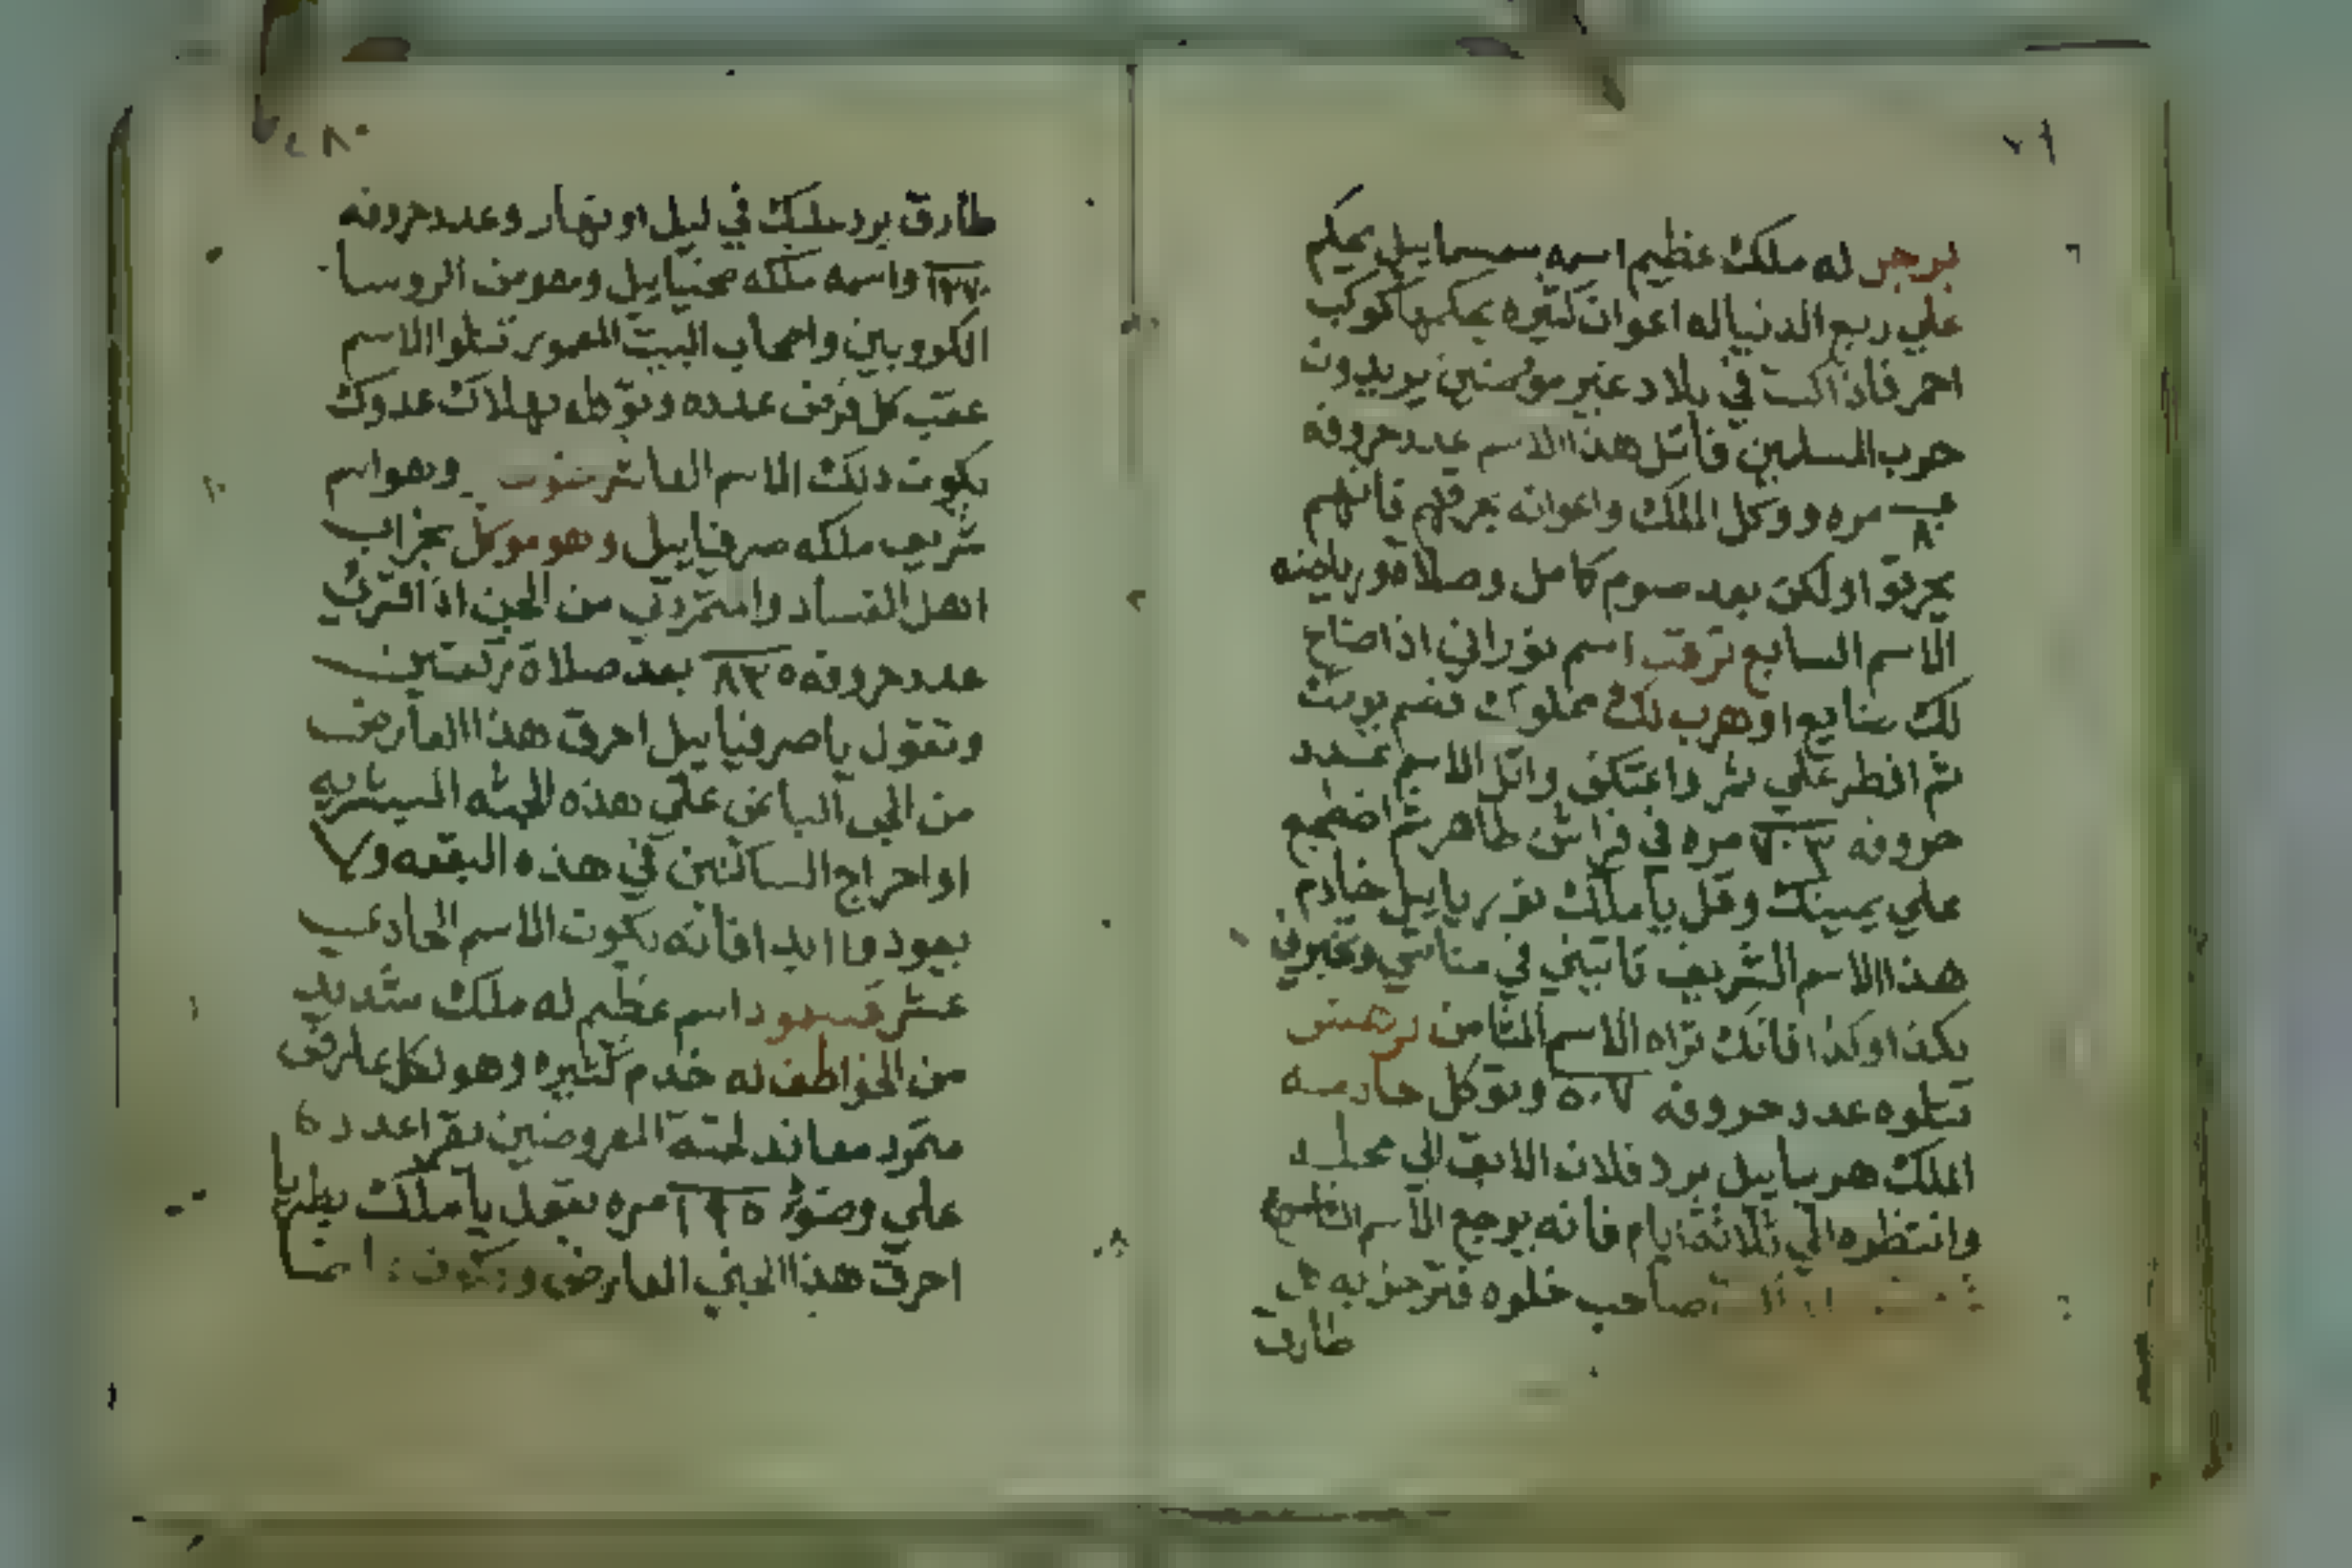 برجن له ملك عظيم اسمه سمسماييل يحكم
علي ربع الدنيا له اعوان كثيره يحكمها كوكب
احمر فاذا كنت في بلاد غير مومنين يريدون
حرب المسلمين فاتل هذا الاسم عدد حروفه
مره ووكل الملك واعوانه بحرقهم فانهم
يحرقوا ولكن بعد صوم كامل وصلاة ورياضه
الاسم السابع ترقب اسم نوراني اذا ضاع
لك ضايع او هرب لك مملوك فصم يومك
ثم افطر علي واعتكف واتل الاسم عدد
حروفه مره في فراش طاهر ثم اضطجع
علي يمينك وقل يا ملك خادم
هذا الاسم الشريف تاتيني في منامي وتخبرني
بكذا وكذا فانك تراه الاسم الثامن برهش
تتلوه عدد حروفه ٥٠٧ وتوكل خادمه
الملك هرياييل برد فلان الابق الي محله
وانتظره الي ثلاثة ايام فانه يرجع الاسم التاسع
صاحب خلوه به
طارق
طارق يرد عليك في ليل او نهار وعدد حروفه
واسمه ملكه وهو من الروسا
الكروبين واصحاب البيت المعمور تتلوا الاسم
عقب كل فرض عدده وتوكله بهلاك عدوك
يكون ذلك الاسم العاشر وهو اسم
شريف ملكه صرفياييل وهو موكل بخراب
اهل الفساد والمتمردين من الجن اذا اقتربت
عدد حروفه ٨٣٥ بعد صلاة ركعتين
وتقول يا صرفياييل احرق هذا العارض
من الجن الباغي علي هذه الجثه البشريه
او اخراج الساكنين في هذه البقعه ولا
يعود وا ابدا فانه يكون الاسم الحادي
عشر اسم عظيم له ملك شديد
من الخواطف له خدم كثيره وهو لكل عارض
متمرد معاند لجثة المعروضين تقرا عدده
علي وضوء مره تقول يا ملك
احرق هذا الجني العارض